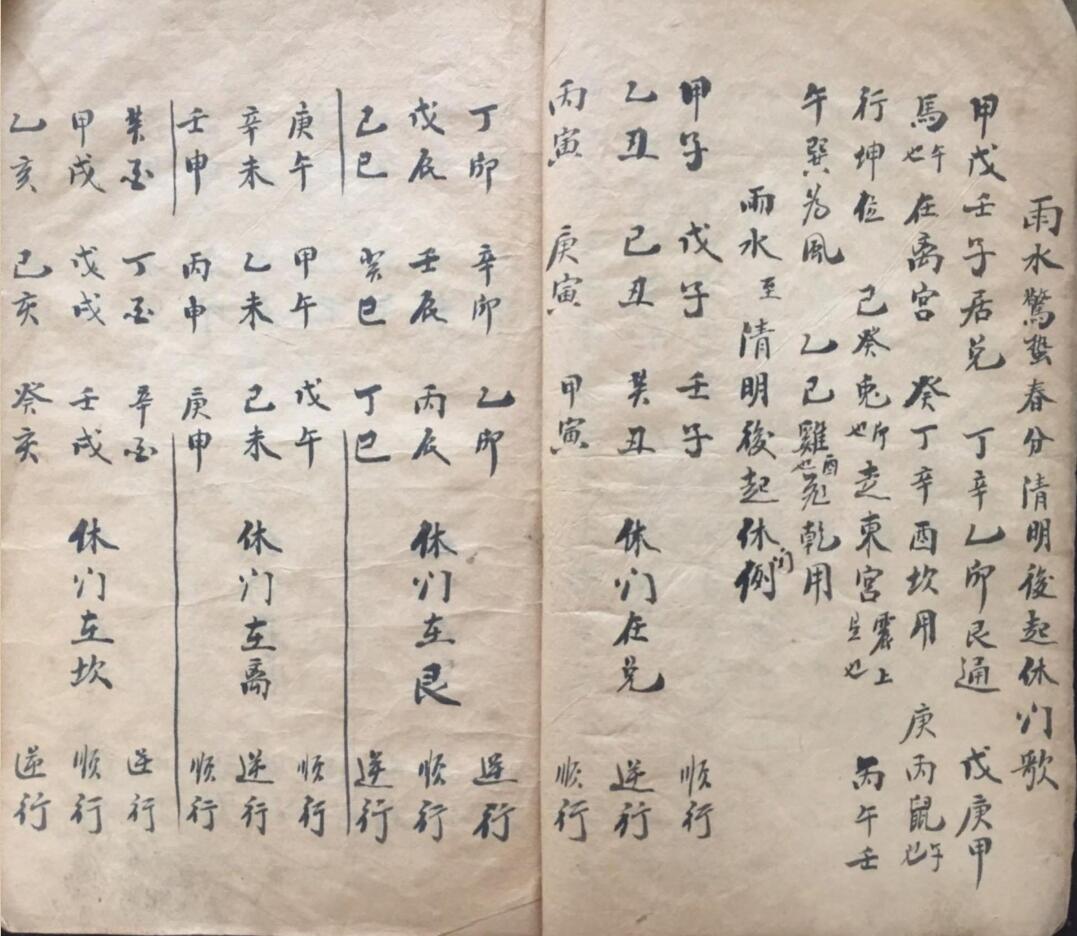 雨水驚蟄春分清明後起休门歌
甲戊壬子居兑 丁辛乙卯艮通 戊庚甲
馬午也在离宮 癸丁辛酉坎用 庚丙鼠午也
行坤位 己癸兎卯也走東宮震上是也 丙午壬
午巽為風 乙己雞酉也 乾用
雨水至清明後起休门例
甲子 戊子 壬子 順行
乙丑 己丑 癸丑 休门在兑 逆行
丙寅 庚寅 甲寅 順行
丁卯 辛卯 乙卯 逆行
戊辰 壬辰 丙辰 休门在艮 順行
己巳 癸巳 丁巳 逆行
庚午 甲午 戊午 順行
辛未 乙未 己未 休门在离 逆行
壬申 丙申 庚申 順行
癸酉 丁酉 辛酉 逆行
甲戌 戊戌 壬戌 休门在坎 順行
乙亥 己亥 癸亥 逆行